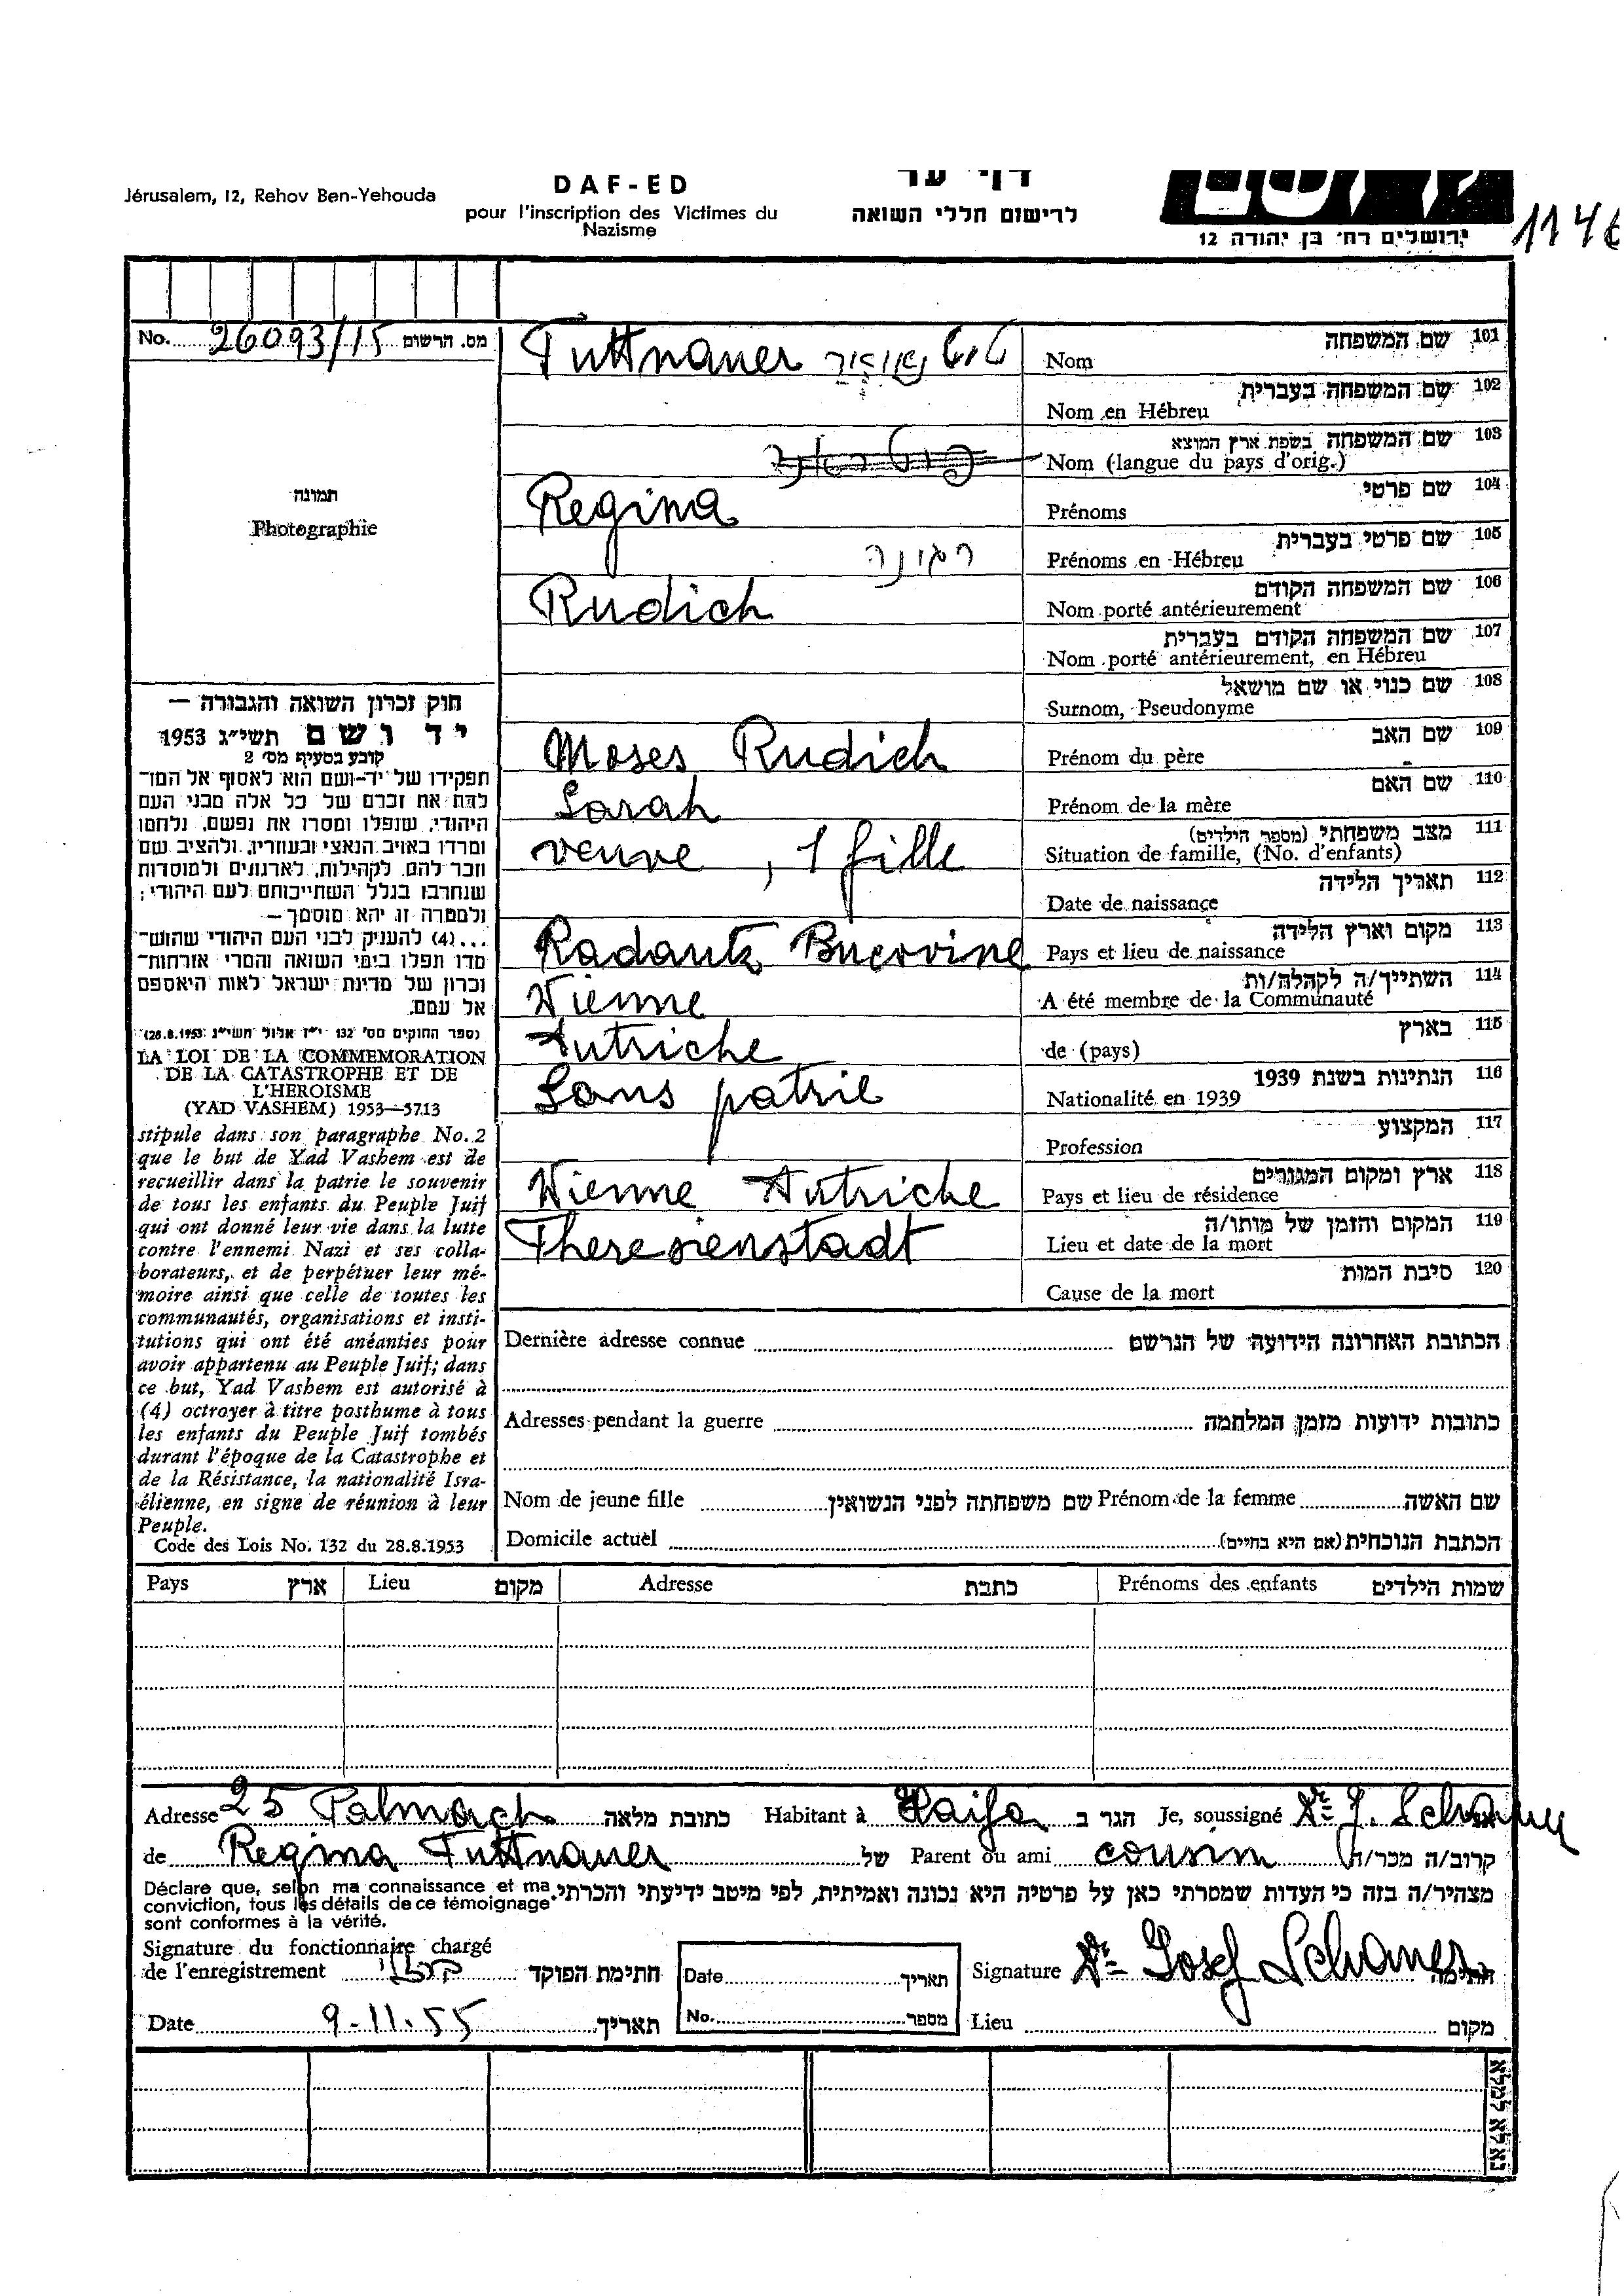 Jérusalem, 12, Rehov Ben-Yehouda
DAF-ED
pour l'inscription des Victimes du
Nazisme
דף עד
לרישום חללי השואה
ירושלים רח' בן יהודה 12
No. 26093/15 מס. הרשום
תמונה
Photographie
Tuttnauer טוטנאואר
Nom שם המשפחה 101
Nom en Hébreu שם המשפחה בעברית 102
Nom (langue du pays d'orig.) שם המשפחה בשפת ארץ המוצא 103
Regina
Prénoms שם פרטי 104
רגינה
Prénoms en Hébreu שם פרטי בעברית 105
Rudich
Nom porté antérieurement שם המשפחה הקודם 106
Nom porté antérieurement, en Hébreu שם המשפחה הקודם בעברית 107
Surnom, Pseudonyme שם כנוי או שם מושאל 108
Moses Rudich
Prénom du père שם האב 109
Sarah
Prénom de la mère שם האם 110
veuve, 1 fille
Situation de famille, (No. d'enfants) מצב משפחתי (מספר הילדים) 111
Date de naissance תאריך הלידה 112
Radautz Bucovine
Pays et lieu de naissance מקום וארץ הלידה 113
Vienne
A été membre de la Communauté השתייך/ה לקהלה/ות 114
Autriche
de (pays) בארץ 115
Sans patrie
Nationalité en 1939 הנתינות בשנת 1939 116
Profession המקצוע 117
Vienne Autriche
Pays et lieu de résidence ארץ ומקום המגורים 118
Theresienstadt
Lieu et date de la mort המקום והזמן של מותו/ה 119
Cause de la mort סיבת המות 120
חוק זכרון השואה והגבורה –
יד ושם תשי"ג 1953
קובע בסעיף מס' 2
תפקידו של יד-ושם הוא לאסוף אל המו־
לדת את זכרם של כל אלה מבני העם
היהודי, שנפלו ומסרו את נפשם, נלחמו
ומרדו באויב הנאצי ובעוזריו, ולהציב שם
וזכר להם, לקהילות, לארגונים ולמוסדות
שנחרבו בגלל השתייכותם לעם היהודי;
ולמטרה זו יהא מוסמך –
...(4) להעניק לבני העם היהודי שהוש־
מדו ונפלו בימי השואה והמרי אזרחות־
זכרון של מדינת ישראל לאות היאספם
אל עמם.
(ספר החוקים מס' 132 י"ז אלול תשי"ג 28.8.1953)
LA LOI DE LA COMMEMORATION
DE LA CATASTROPHE ET DE
L'HEROISME
(YAD VASHEM) 1953—5713
stipule dans son paragraphe No. 2
que le but de Yad Vashem est de
recueillir dans la patrie le souvenir
de tous les enfants du Peuple Juif
qui ont donné leur vie dans la lutte
contre l'ennemi Nazi et ses colla-
borateurs, et de perpétuer leur mé-
moire ainsi que celle de toutes les
communautés, organisations et insti-
tutions qui ont été anéanties pour
avoir appartenu au Peuple Juif; dans
ce but, Yad Vashem est autorisé à
(4) octroyer à titre posthume à tous
les enfants du Peuple Juif tombés
durant l'époque de la Catastrophe et
de la Résistance, la nationalité Isra-
élienne, en signe de réunion à leur
Peuple.
Code des Lois No. 132 du 28.8.1953
Dernière adresse connue הכתובת האחרונה הידועה של הנרשם
Adresses pendant la guerre כתובות ידועות מזמן המלחמה
Nom de jeune fille שם משפחתה לפני הנשואין Prénom de la femme שם האשה
Domicile actuel הכתבת הנוכחית (אם היא בחיים)
Pays ארץ Lieu מקום Adresse כתבת Prénoms des enfants שמות הילדים
Adresse 25 Palmach כתובת מלאה Habitant à Haifa הגר ב Je, soussigné Dr J. Schauer
de Regina Tuttnauer של Parent ou ami cousin קרוב/ה מכר/ה
Déclare que, selon ma connaissance et ma
conviction, tous les détails de ce témoignage
sont conformes à la vérité.
מצהיר/ה בזה כי העדות שמסרתי כאן על פרטיה היא נכונה ואמיתית, לפי מיטב ידיעתי והכרתי.
Signature du fonctionnaire chargé
de l'enregistrement חתימת הפוקד
Date תאריך
Signature Dr Josef Schauer חתימה
Date 9-11-55 תאריך
No. מספר
Lieu מקום
נא לא למלא